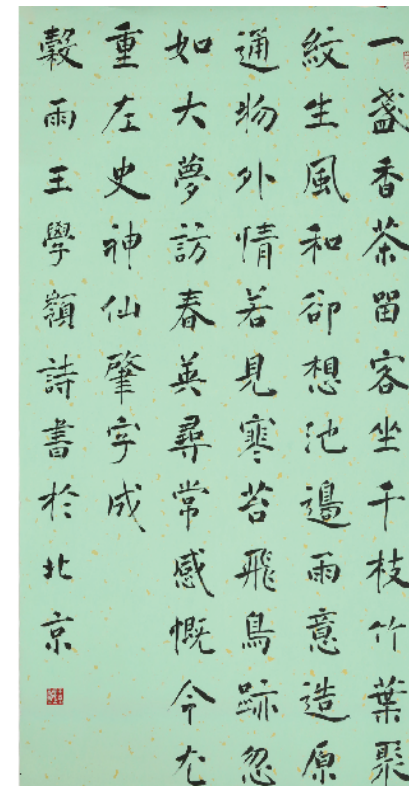 一盞香茶留客坐千枝竹葉聚
紋生風和卻想池邊雨意造原
通物外情若見寒苔飛鳥跡忽
如大夢訪春英尋常感慨今尤
重左史神仙肇字成
穀雨王學嶺詩書於北京